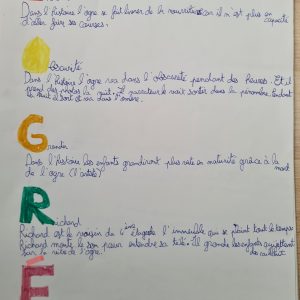 Dans l'histoire l'ogre se fait livrer de la nourriture car il n'est plus en capacité
d'aller faire ses courses.
Obscurité
Dans l'histoire l'ogre va dans l'obscurité pendant des heures. Et il
prend des photos la nuit. Il narrateur le voit sortir dans la pénombre. Pendant
la nuit il sort et va dans l'ombre.
Grandir
Dans l'histoire les enfants grandiront plus vite en maturité grâce à la mort
de l'ogre (l'artiste)
Richard
Richard est le voisin du 4ème étage de l'immeuble qui se plaint tout le temps
Richard monte le son pour entendre sa télé. Il gronde les enfants qui
sur la
de l'ogre.
E